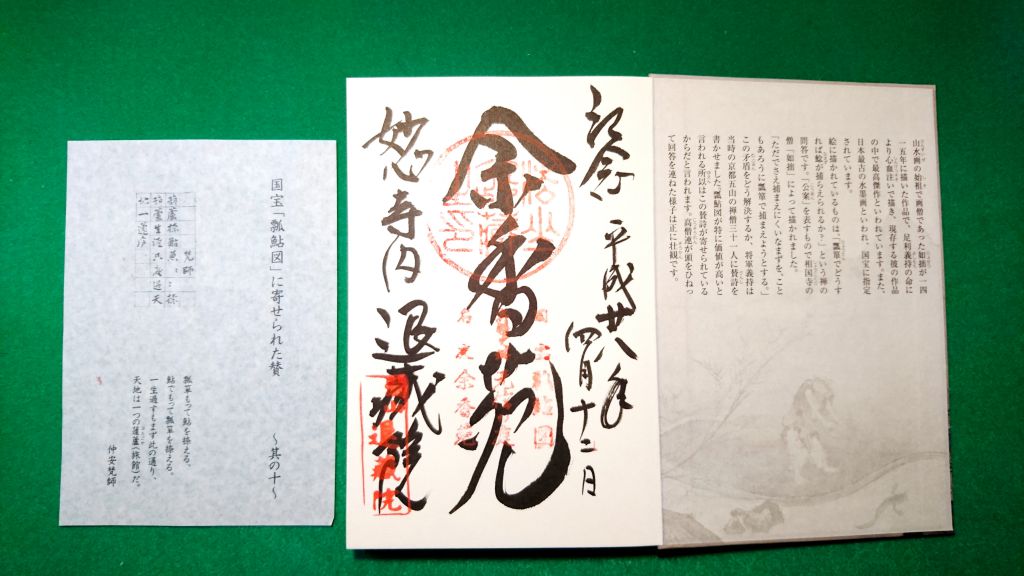 山水画の始祖で画僧であった如拙が一四
一五年に描いた作品で、足利義持の命に
より心血注いで描き、現存する彼の作品
の中で最高傑作といわれています。また、
日本最古の水墨画といわれ、国宝に指定
されています。
絵に描かれているものは、「瓢箪でどうす
れば鯰が捕らえられるか?」という禅の
問答です。「公案」を表すもので相国寺の
僧「如拙」によって描かれました。
「ただでさえ捕まえにくいなまずを、こと
もあろうに瓢箪で捕まえようとする。」
この矛盾をどう解決するか、将軍義持は
当時の京都五山の禅僧三十一人に賛詩を
書かせました。瓢鮎図が特に価値が高いと
言われる所以はこの賛詩が寄せられている
からだと言われます。高僧達が頭をひねっ
て回答を連ねた様子は正に壮観です。
記念 平成廿八年
四月十二日
余香苑
妙心寺内 退蔵院
国宝瓢鮎図
名勝余香苑
退蔵院
国宝「瓢鮎図」に寄せられた賛
〜其の十〜
梵師
瓢箪もって鮎を捺える。
鮎でもって瓢箪を捺える。
一生過すもまず此の通り、
天地は一つの蘧蘆(旅館)だ。
仲安梵師